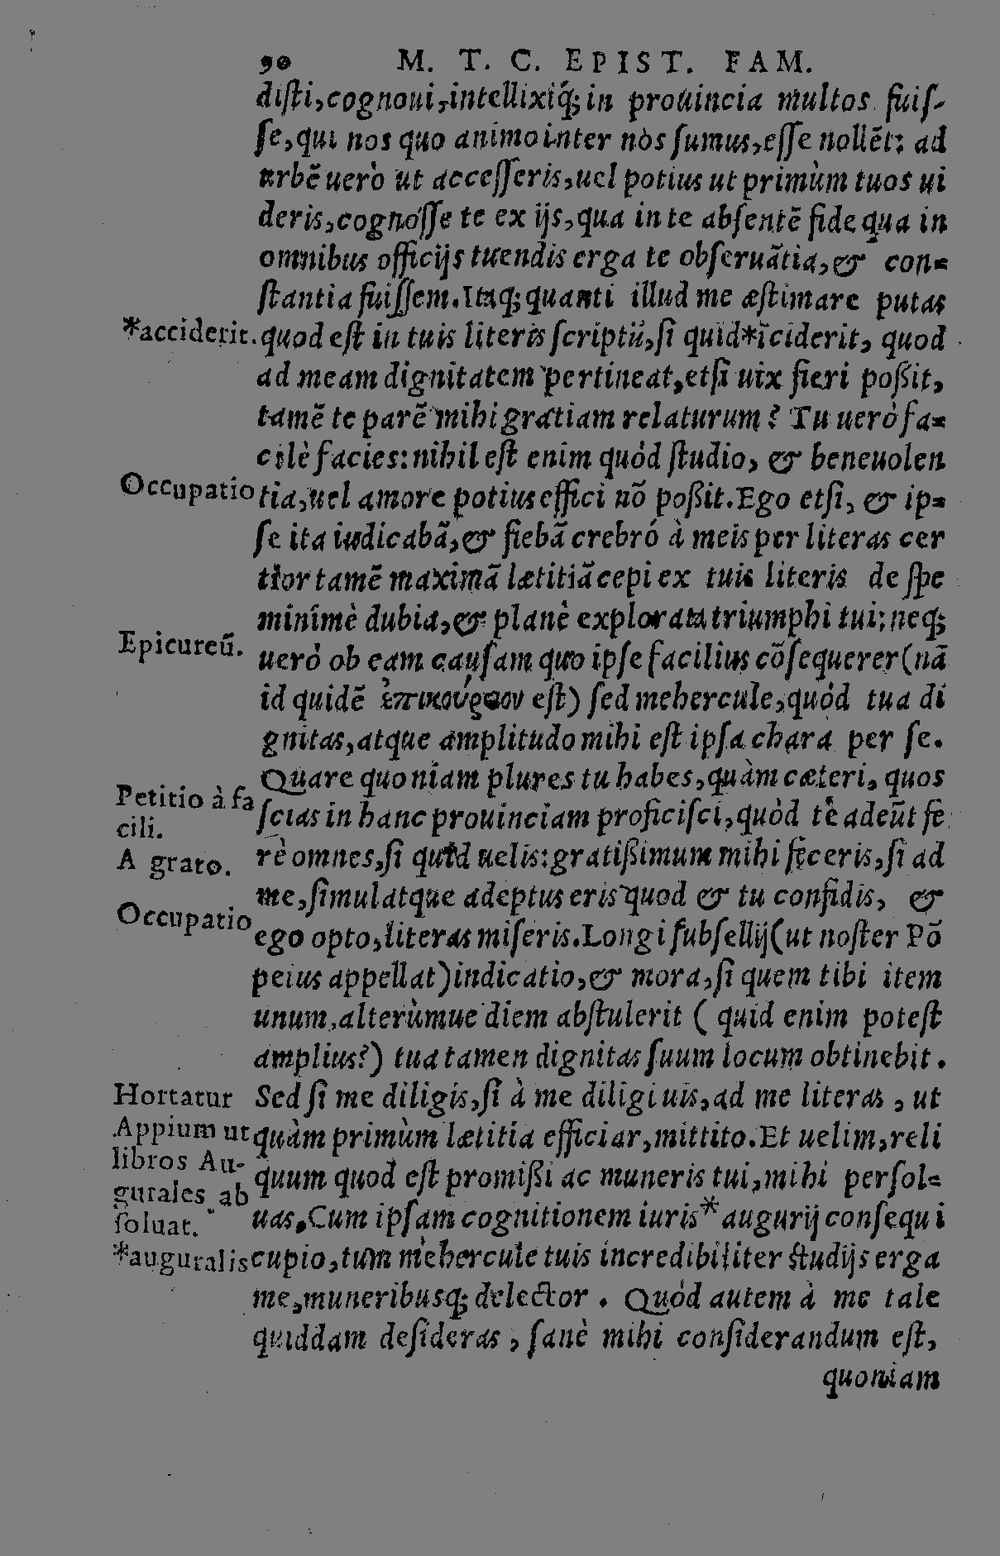 90 M. T. C. EPIST. FAM.
diſti, cognoui, intellixiq́; in prouincia multos fuiſ-
ſe, qui nos quo animo inter nos ſumus, eſſe nollẽt: ad
urbẽ uerò ut acceſſeris, uel potius ut primùm tuos ui
deris, cognoſſe te ex ijs, qua in te abſentẽ fide qua in
omnibus officijs tuendis erga te obſeruãtia, & con-
ſtantia fuiſſem. Itaq; quanti illud me æſtimare putas
*acciderit. quod eſt in tuis literis ſcriptũ, ſi quid*ĩciderit, quod
ad meam dignitatem pertineat, etſi uix fieri poßit,
tamẽ te parẽ mihi gratiam relaturum? Tu uerò fa-
cilè facies: nihil eſt enim quòd ſtudio, & beneuolen
Occupatio tia, uel amore potius effici nõ poßit. Ego etſi, & ip-
ſe ita iudicabã, & fiebã crebró à meis per literas cer
tior tamẽ maximã lætitiã cepi ex tuis literis de ſpe
minimè dubia, & planè explorata triumphi tui: neq;
Epicureũ. uerò ob eam cauſam quo ipſe facilius cõſequerer (nã
id quidẽ ἐπικούρειον eſt) ſed mehercule, quòd tua di
gnitas, atque amplitudo mihi eſt ipſa chara per ſe.
Quare quoniam plures tu habes, quàm cæteri, quos
Petitio à fa
cili.
ſcias in hanc prouinciam proficiſci, quòd te adeũt fe
A grato. rè omnes, ſi quid uelis: gratißimum mihi feceris, ſi ad
me, ſimulatque adeptus eris quod & tu confidis, &
Occupatio ego opto, literas miſeris. Longi ſubſellij (ut noſter Põ
peius appellat) indicatio, & mora, ſi quem tibi item
unum, alterùmue diem abſtulerit ( quid enim poteſt
amplius?) tua tamen dignitas ſuum locum obtinebit.
Hortatur
Appium ut
libros Au-
gurales ab
ſoluat.
Sed ſi me diligis, ſi à me diligi uis, ad me literas, ut
quàm primùm lætitia efficiar, mittito. Et uelim, reli
quum quod eſt promißi ac muneris tui, mihi perſol-
uas. Cum ipſam cognitionem iuris* augurij conſequi
*auguralis cupio, tum mehercule tuis incredibiliter ſtudijs erga
me, muneribusq; delector. Quòd autem à me tale
quiddam deſideras, ſanè mihi conſiderandum eſt,
quoniam